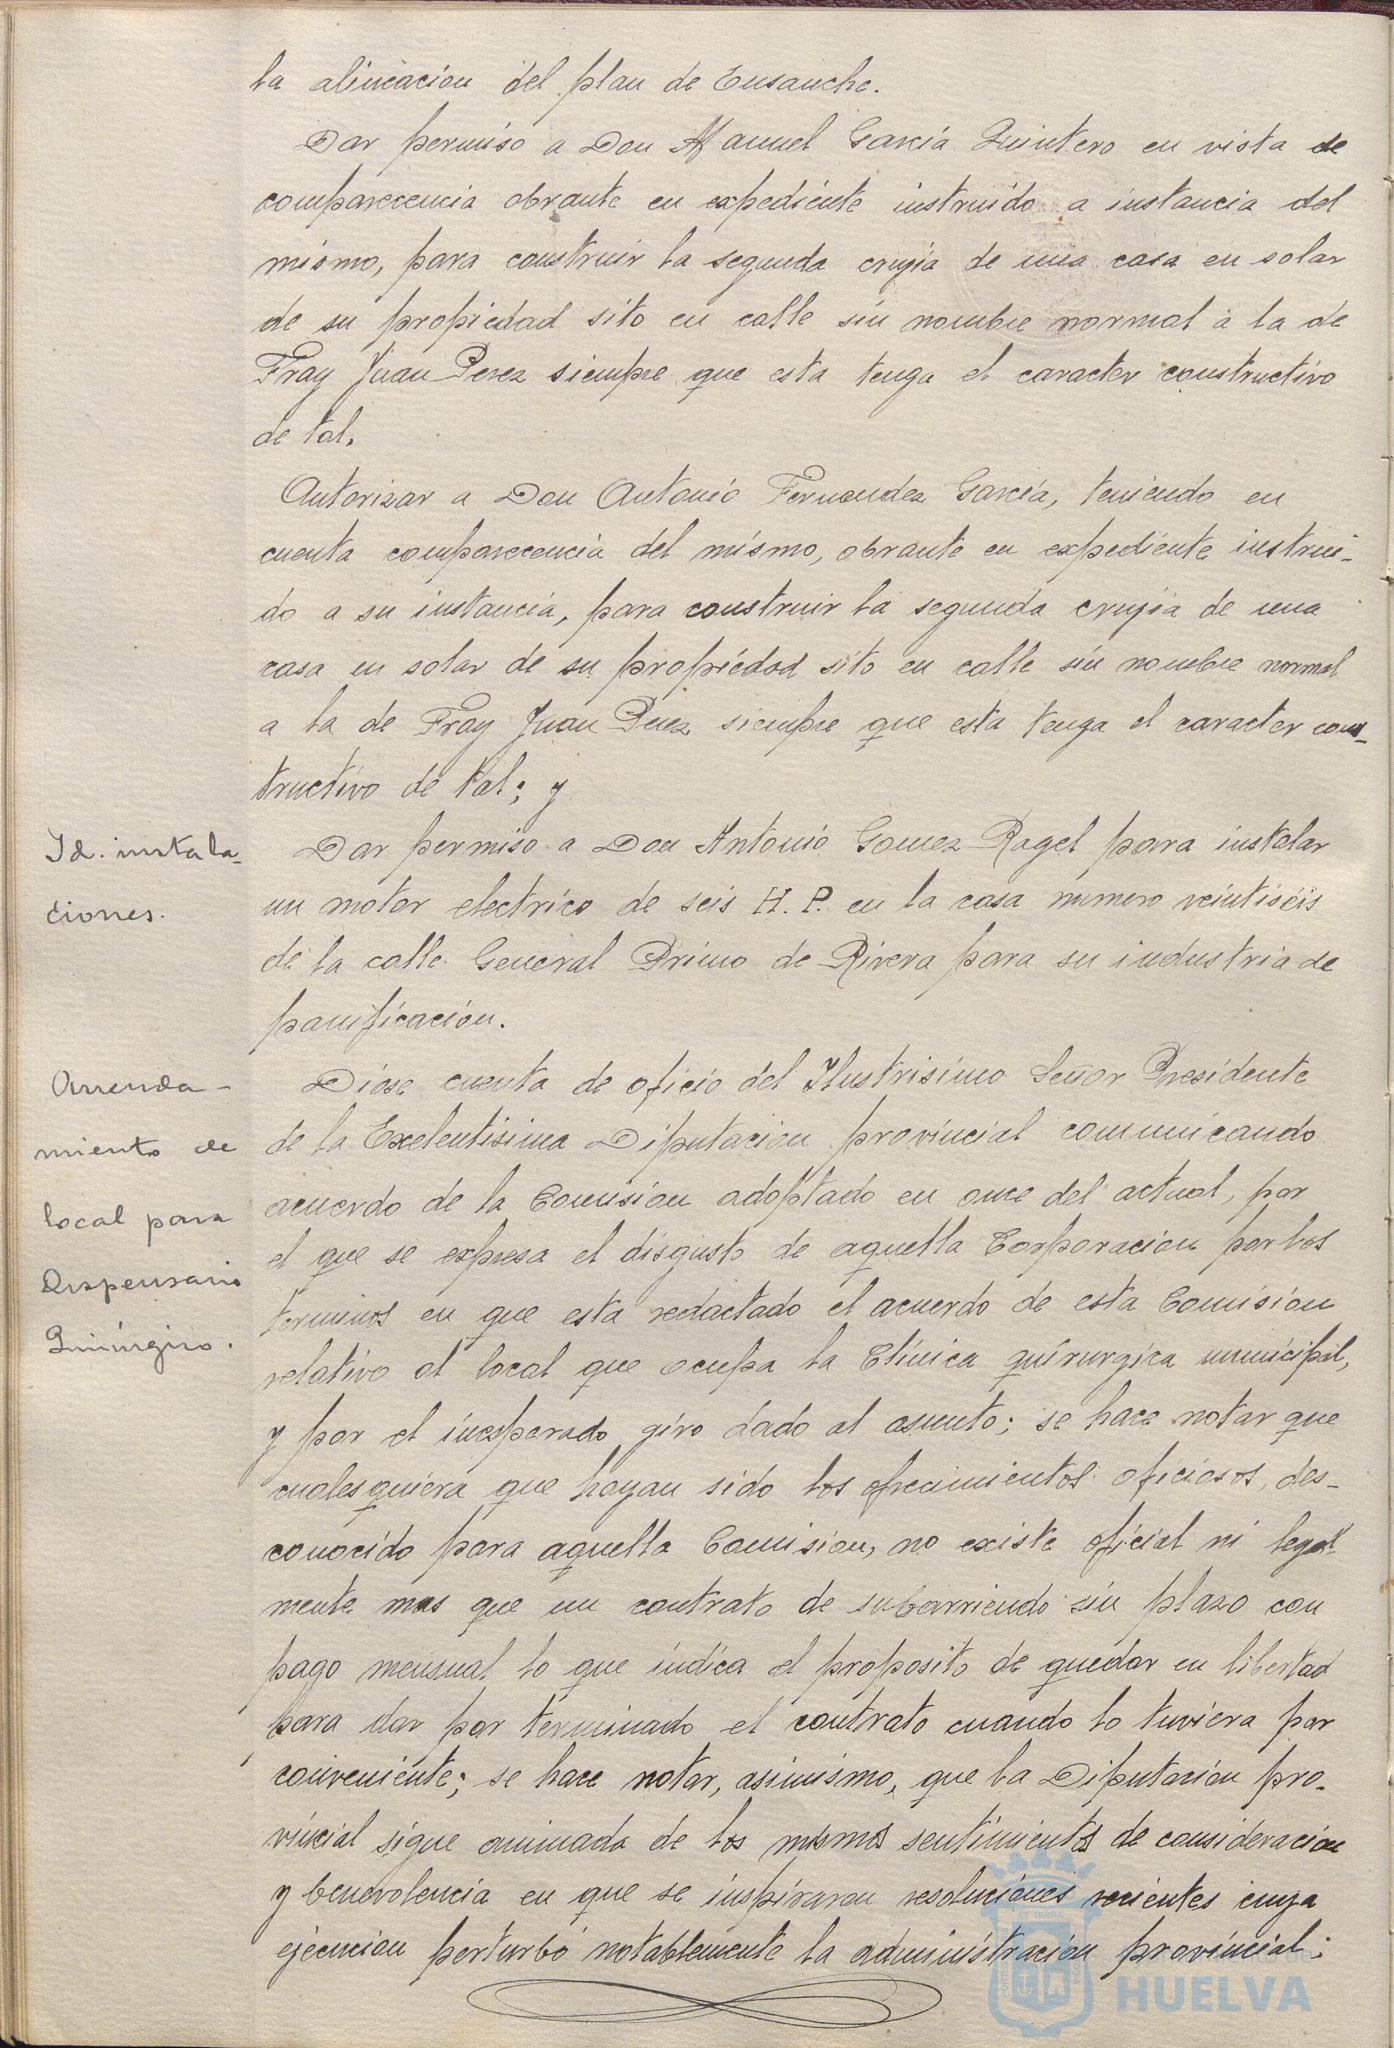 la alineacion del plan de Ensanche.
Dar permiso a Don Manuel Garcia Quintero en vista de
comparecencia obrante en expediente instruido a instancia del
mismo, para construir la segunda crujia de una casa en solar
de su propiedad sito en calle sin nombre normal a la de
Fray Juan Perez siempre que esta tenga el caracter constructivo
de tal.
Autorizar a Don Antonio Fernandez Garcia, teniendo en
cuenta comparecencia del mismo, obrante en expediente instrui-
do a su instancia, para construir la segunda crujia de una
casa en solar de su propiedad sito en calle sin nombre normal
a la de Fray Juan Perez siempre que esta tenga el caracter cons-
tructivo de tal; y
Id. instala-
ciones.
Dar permiso a Don Antonio Gomez Ragel para instalar
un motor electrico de seis H. P. en la casa numero veintiseis
de la calle General Primo de Rivera para su industria de
panificación.
Arrenda-
miento de
local para
Dispensario
Quirúrgico.
Diose cuenta de oficio del Ilustrisimo Señor Presidente
de la Exelentisima Diputacion provincial comunicando
acuerdo de la Comision adoptado en once del actual, por
el que se expresa el disgusto de aquella Corporacion por los
terminos en que esta redactado el acuerdo de esta Comision
relativo al local que ocupa la Clinica quirurgica municipal,
y por el inesperado giro dado al asunto; se hace notar que
cualesquiera que hayan sido los ofrecimientos oficiosos, des-
conocido para aquella Comision, no existe oficial ni legal-
mente mas que un contrato de subarriendo sin plazo con
pago mensual lo que indica el proposito de quedar en libertad
para dar por terminado el contrato cuando lo tuviera por
conveniente; se hace notar, asimismo, que la Diputacion pro-
vincial sigue animada de los mismos sentimientos de consideracion
y benevolencia en que se inspiraron resoluciones recientes cuya
ejecucion perturbó notablemente la administracion provincial;
HUELVA